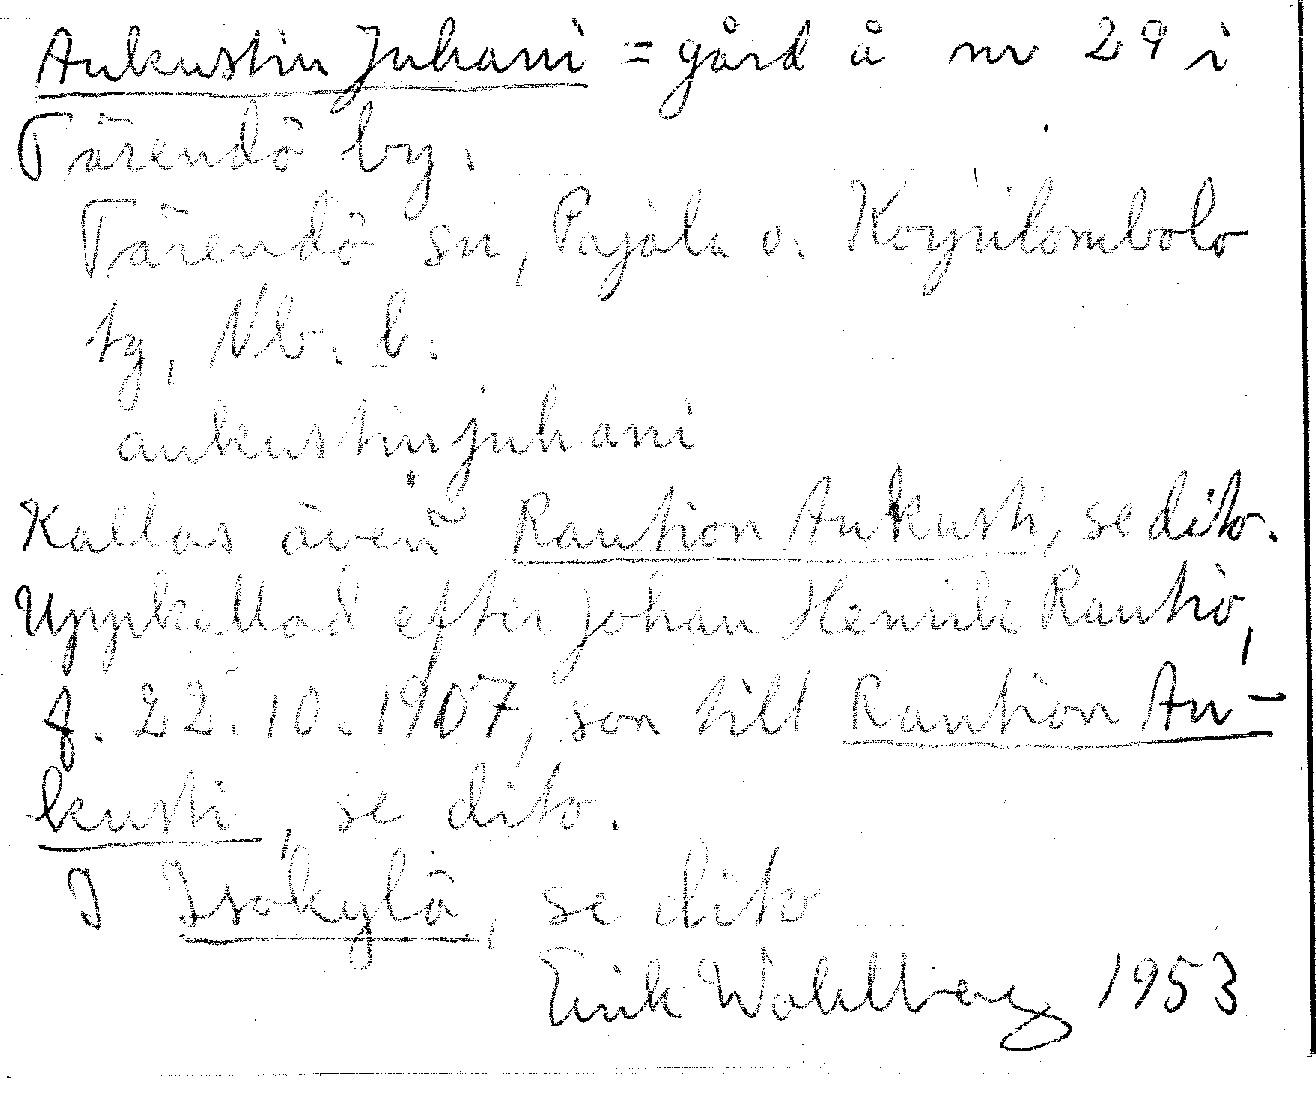 Aukustin Juhani = gård å nr 29 i
Tärendö by.
Tärendö sn, Pajala o. Korpilombolo
tg, Nb. l.
aukustinjuhani
Kallas även Raution Aukusti, se dito.
Uppkallad efter Johan Henrik Rautio,
f. 22.10.1907, son till Raution Au-
kusti, se dito.
I Isokylä, se dito
Erik Wahlberg 1953